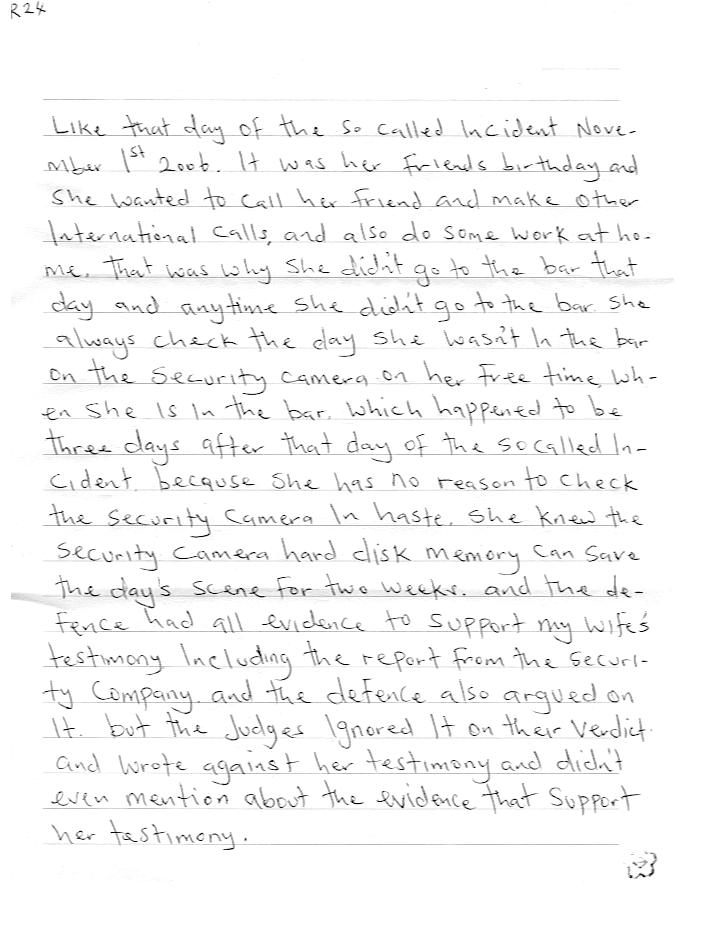 R24
Like that day of the so called Incident Nove-
mber 1st 2006. It was her friends birthday and
she wanted to call her friend and make other
International calls, and also do some work at ho-
me. That was why she didn't go to the bar that
day and anytime she didn't go to the bar. She
always check the day she wasn't In the bar
on the security camera on her free time, wh-
en she Is In the bar. which happened to be
three days after that day of the so called In-
cident. because she has no reason to check
the security camera In haste. She knew the
security camera hard disk memory can save
the day's scene for two weeks. and the de-
fence had all evidence to support my wife's
testimony Including the report from the securi-
ty company. and the defence also argued on
It. but the Judges Ignored It on their verdict.
and wrote against her testimony and didn't
even mention about the evidence that support
her testimony.